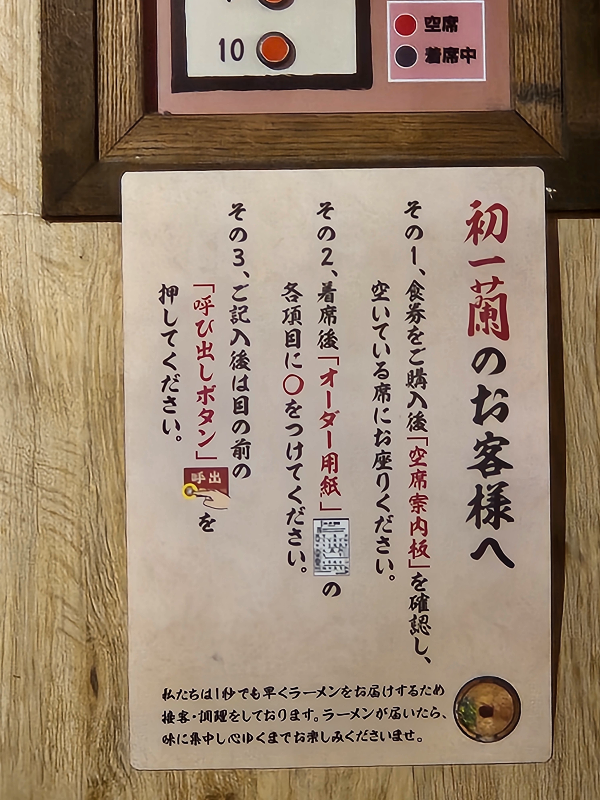 10
空席
着席中
初一蘭のお客様へ
その1、食券をご購入後「空席案内板」を確認し、
空いている席にお座りください。
その2、着席後「オーダー用紙」の
各項目に〇をつけてください。
その3、ご記入後は目の前の
「呼び出しボタン」呼出を
押してください。
私たちは1秒でも早くラーメンをお届けするため
接客・調理をしております。ラーメンが届いたら、
味に集中し心ゆくまでお楽しみくださいませ。